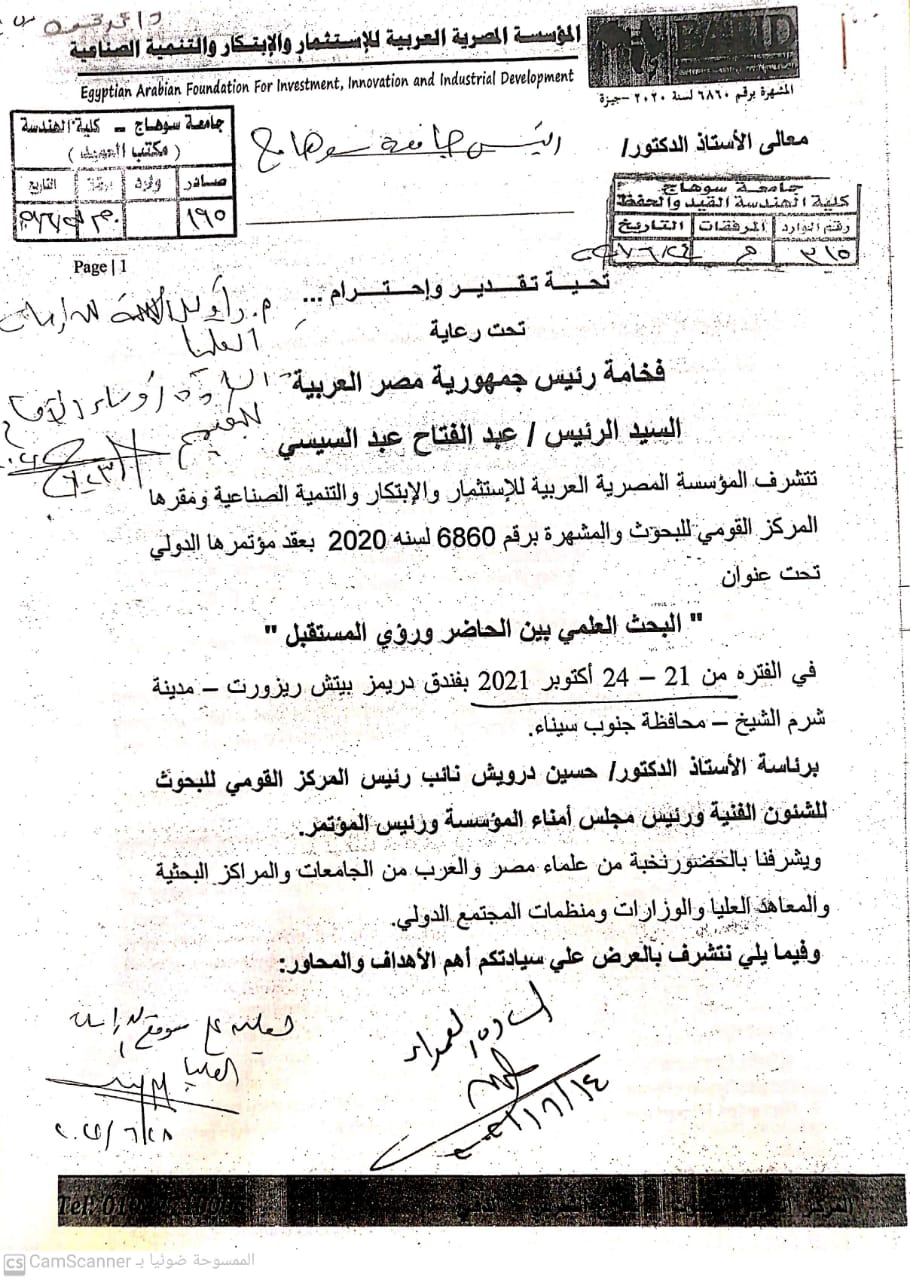 المؤسسة المصرية العربية للإستثمار والإبتكار والتنمية الصناعية
Egyptian Arabian Foundation For Investment, Innovation and Industrial Development
المشهرة برقم ٦٨٦٠ لسنة ٢٠٢٠ –جيزة
جامعة سوهاج – كلية الهندسة
( مكتب العميد )
صادر
التاريخ
١٩٥
معالى الأستاذ الدكتور/ رئيس جامعة سوهاج
جامعـة سوهاج
كلية الهندسة القيد والحفظ
رقم الوارد المرفقات التاريخ
٣١٥
Page | 1
تحيـة تقـدير وإحتـرام ...
تحت رعاية
فخامة رئيس جمهورية مصر العربية
السيد الرئيس / عبد الفتاح عبد السيسي
تتشرف المؤسسة المصرية العربية للإستثمار والإبتكار والتنمية الصناعية ومقرها
المركز القومي للبحوث والمشهرة برقم 6860 لسنه 2020 بعقد مؤتمرها الدولي
تحت عنوان
" البحث العلمي بين الحاضر ورؤي المستقبل "
في الفتره من 21 – 24 أكتوبر 2021 بفندق دريمز بيتش ريزورت – مدينة
شرم الشيخ – محافظة جنوب سيناء.
برئاسة الأستاذ الدكتور/ حسين درويش نائب رئيس المركز القومي للبحوث
للشئون الفنية ورئيس مجلس أمناء المؤسسة ورئيس المؤتمر.
ويشرفنا بالحضورنخبة من علماء مصر والعرب من الجامعات والمراكز البحثية
والمعاهد العليا والوزارات ومنظمات المجتمع الدولي.
وفيما يلي نتشرف بالعرض علي سيادتكم أهم الأهداف والمحاور:
السادة العمداء
العليا
CS CamScanner الممسوحة ضوئيا بـ